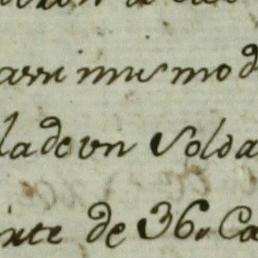 arri mismo d
la de vn Solda
inte de 36. Ca